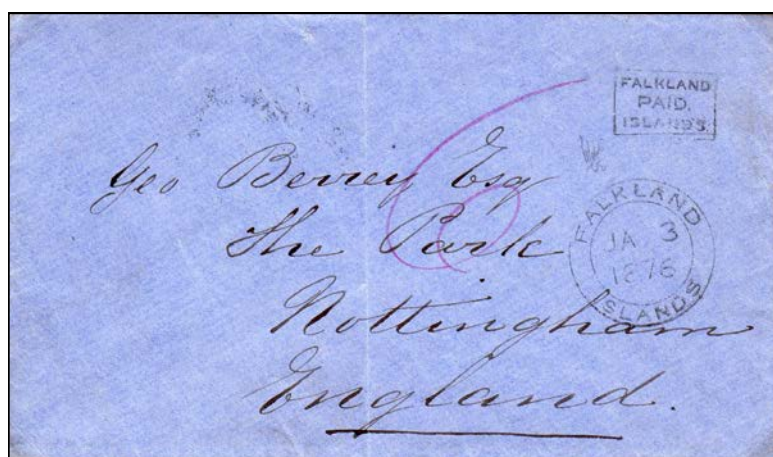 FALKLAND
PAID.
ISLANDS
Geo Berrey Esq
The Park
Nottingham
England.
6
FALKLAND
JA 3
1876
ISLANDS